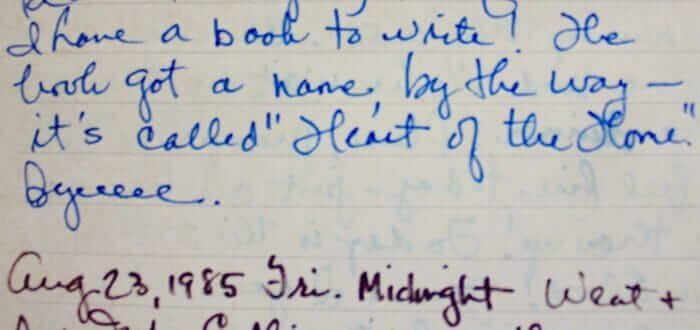 I have a book to write! The
book got a name, by the way —
it's called "Heart of the Home."
Byeeeee..
Aug. 23, 1985 Fri. Midnight Went +